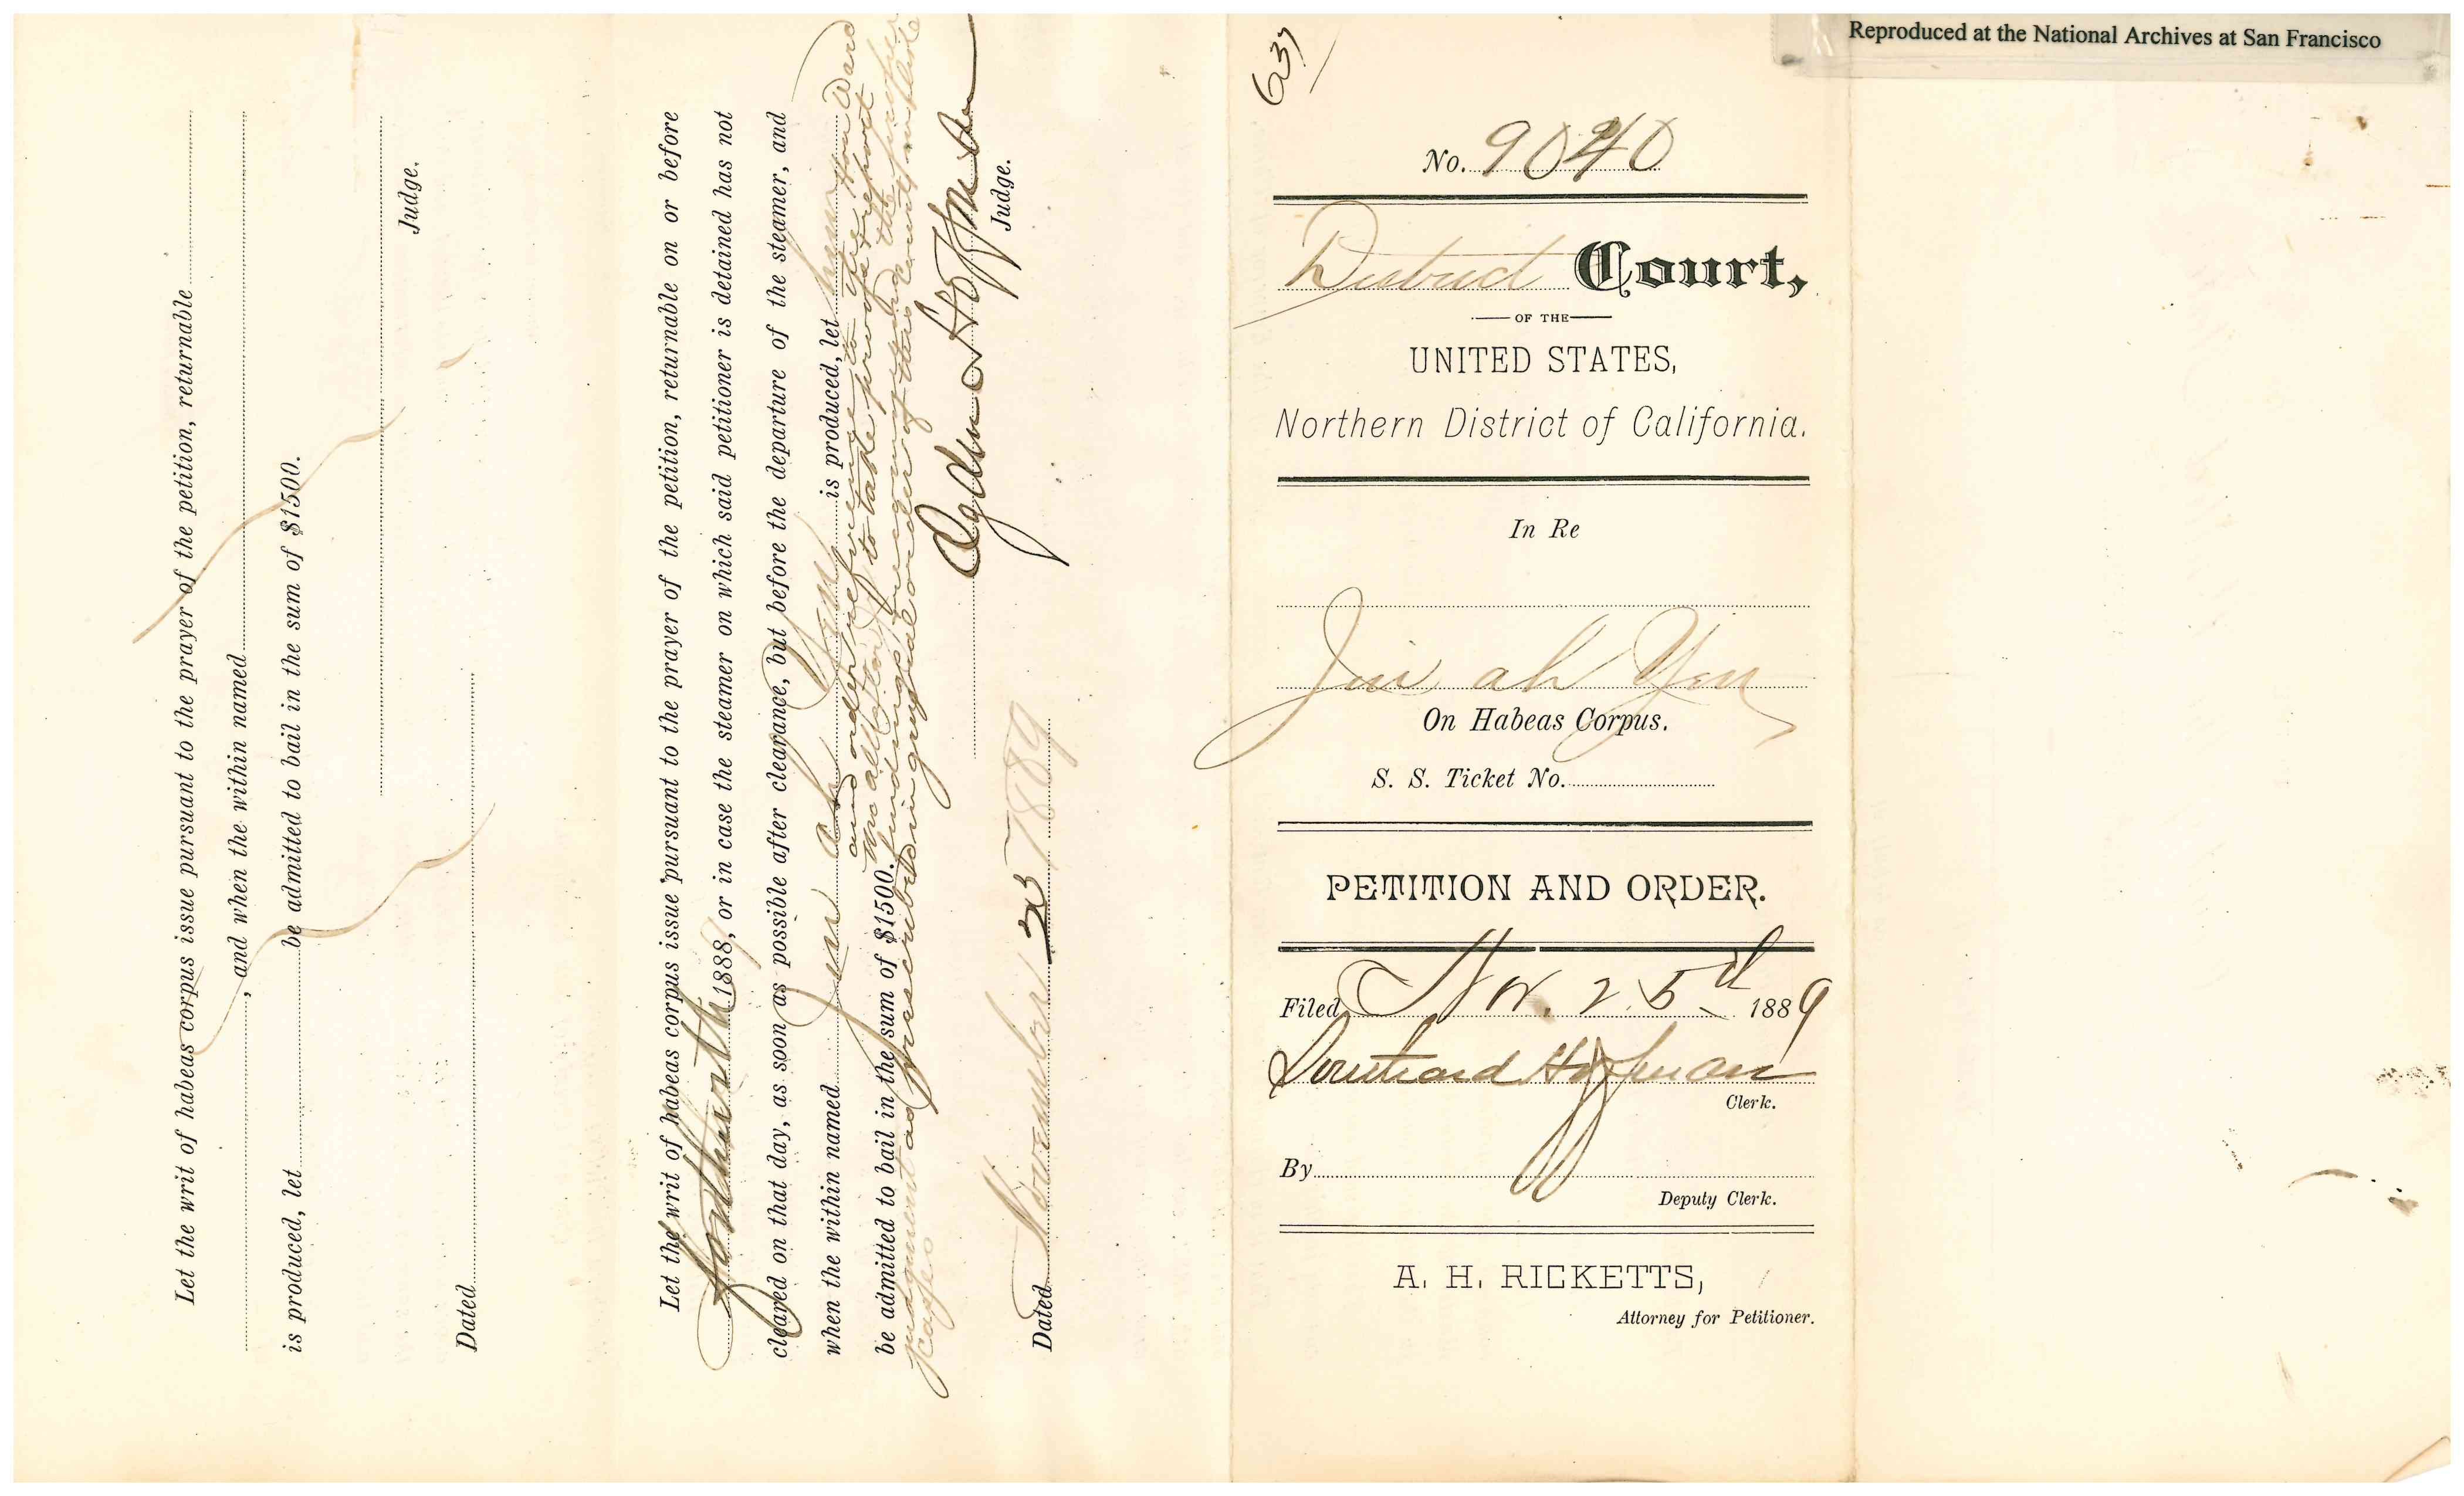 Let the writ of habeas corpus issue pursuant to the prayer of the petition, returnable
, and when the within named
is produced, let be admitted to bail in the sum of $1500.
Judge.
Dated
Let the writ of habeas corpus issue pursuant to the prayer of the petition, returnable on or before
Forthwith 1889, or in case the steamer on which said petitioner is detained has not
cleared on that day, as soon as possible after clearance, but before the departure of the steamer, and
when the within named Jin Ah Yen is produced, let him
and order of reference to the Hon Ward
be admitted to bail in the sum of $1500.
McAllister Jr to take proofs & report
findings & judgment
as prescribed in general order of this court in
judgment
cases
Ogden Hoffman
Judge.
Dated November 25 1889
Reproduced at the National Archives at San Francisco
637
No. 9040
District Court,
OF THE
UNITED STATES,
Northern District of California.
In Re
Jin ah Yen
On Habeas Corpus.
S. S. Ticket No.
PETITION AND ORDER.
Filed Nov. 25th 1889
Southard Hoffman
Clerk.
By
Deputy Clerk.
A. H. RICKETTS,
Attorney for Petitioner.